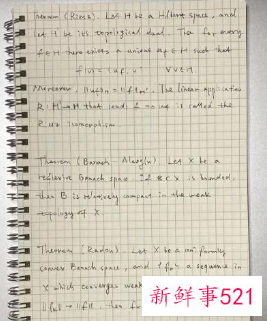 Theorem (Riesz). Let H be a Hilbert space, and
let H' be its topological dual. The for every
f ∈ H there exists a unique u_f ∈ H such that
∀ v ∈ H
Moreover, The linear application
R: H' → H that sends f to u_f is called the
Riesz isomorphism.
Theorem (Banach Alaoglu) Let X be a
reflexive Banach space. If B ⊂ X is bounded,
then B is relatively compact in the weak
topology of X.
Theorem (Radon) Let X be a uniformly
convex Banach space, and a sequence in
X which converges weak
新鲜事521